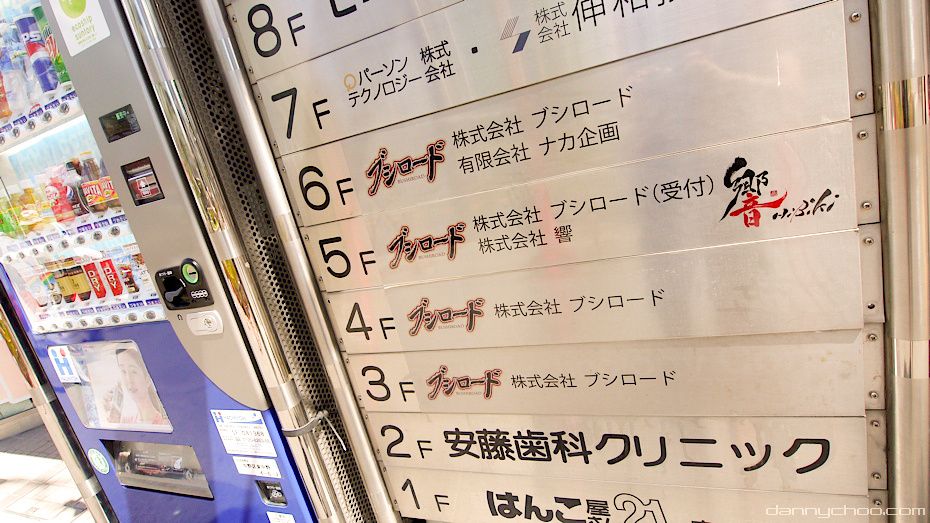 8F
7F パーソン 株式
テクノロジー会社
・ 株式
会社
6F ブシロード
BUSHIROAD
株式会社 ブシロード
有限会社 ナカ企画
5F ブシロード
BUSHIROAD
株式会社 ブシロード(受付)
株式会社 響
響 HiBiKi
4F ブシロード
BUSHIROAD
株式会社 ブシロード
3F ブシロード
BUSHIROAD
株式会社 ブシロード
2F 安藤歯科クリニック
1F はんこ屋さん21
ecoship
suntory
dannychoo.com